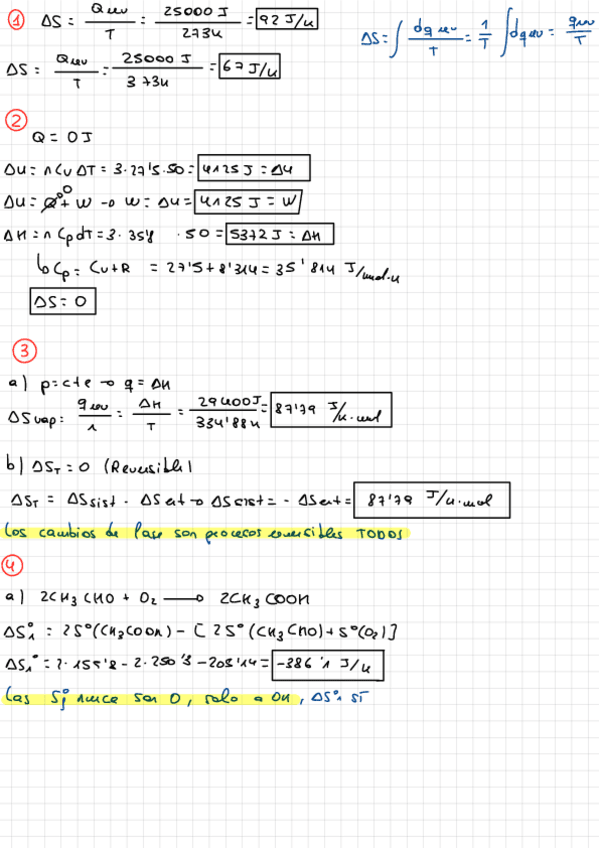 ① ΔS = Qrev/T = 25000 J/273K = 92 J/K
ΔS = ∫ dqrev/T = 1/T ∫ dqrev = qrev/T
ΔS = Qrev/T = 25000 J/373K = 67 J/K
②
Q = 0 J
ΔU = n Cv ΔT = 3·27'5·50 = 4125 J = ΔU
ΔU = Q + W → W = ΔU = 4125 J = W
ΔH = n Cp dT = 3·358 ·50 = 5372 J = ΔH
↳ Cp = Cv + R = 27'5 + 8'314 = 35'814 J/mol·K
ΔS = 0
③
a) p = cte → q = ΔH
ΔSvap = qrev/T = ΔH/T = 29400J/334'88K = 87'79 J/K·mol
b) ΔST = 0 (Reversible)
ΔST = ΔSsist - ΔSext → ΔSsist = - ΔSext = 87'79 J/K·mol
Los cambios de fase son procesos reversibles TODOS
④
a) 2CH3CHO + O2 → 2CH3COOH
ΔS°r = 2S°(CH3COOH) - [2S°(CH3CHO) + S°(O2)]
ΔSr° = 2·159'8 - 2·250'3 - 205'14 = -386'1 J/K
Las S°j nunca son 0, solo a 0K, ΔS°r sí